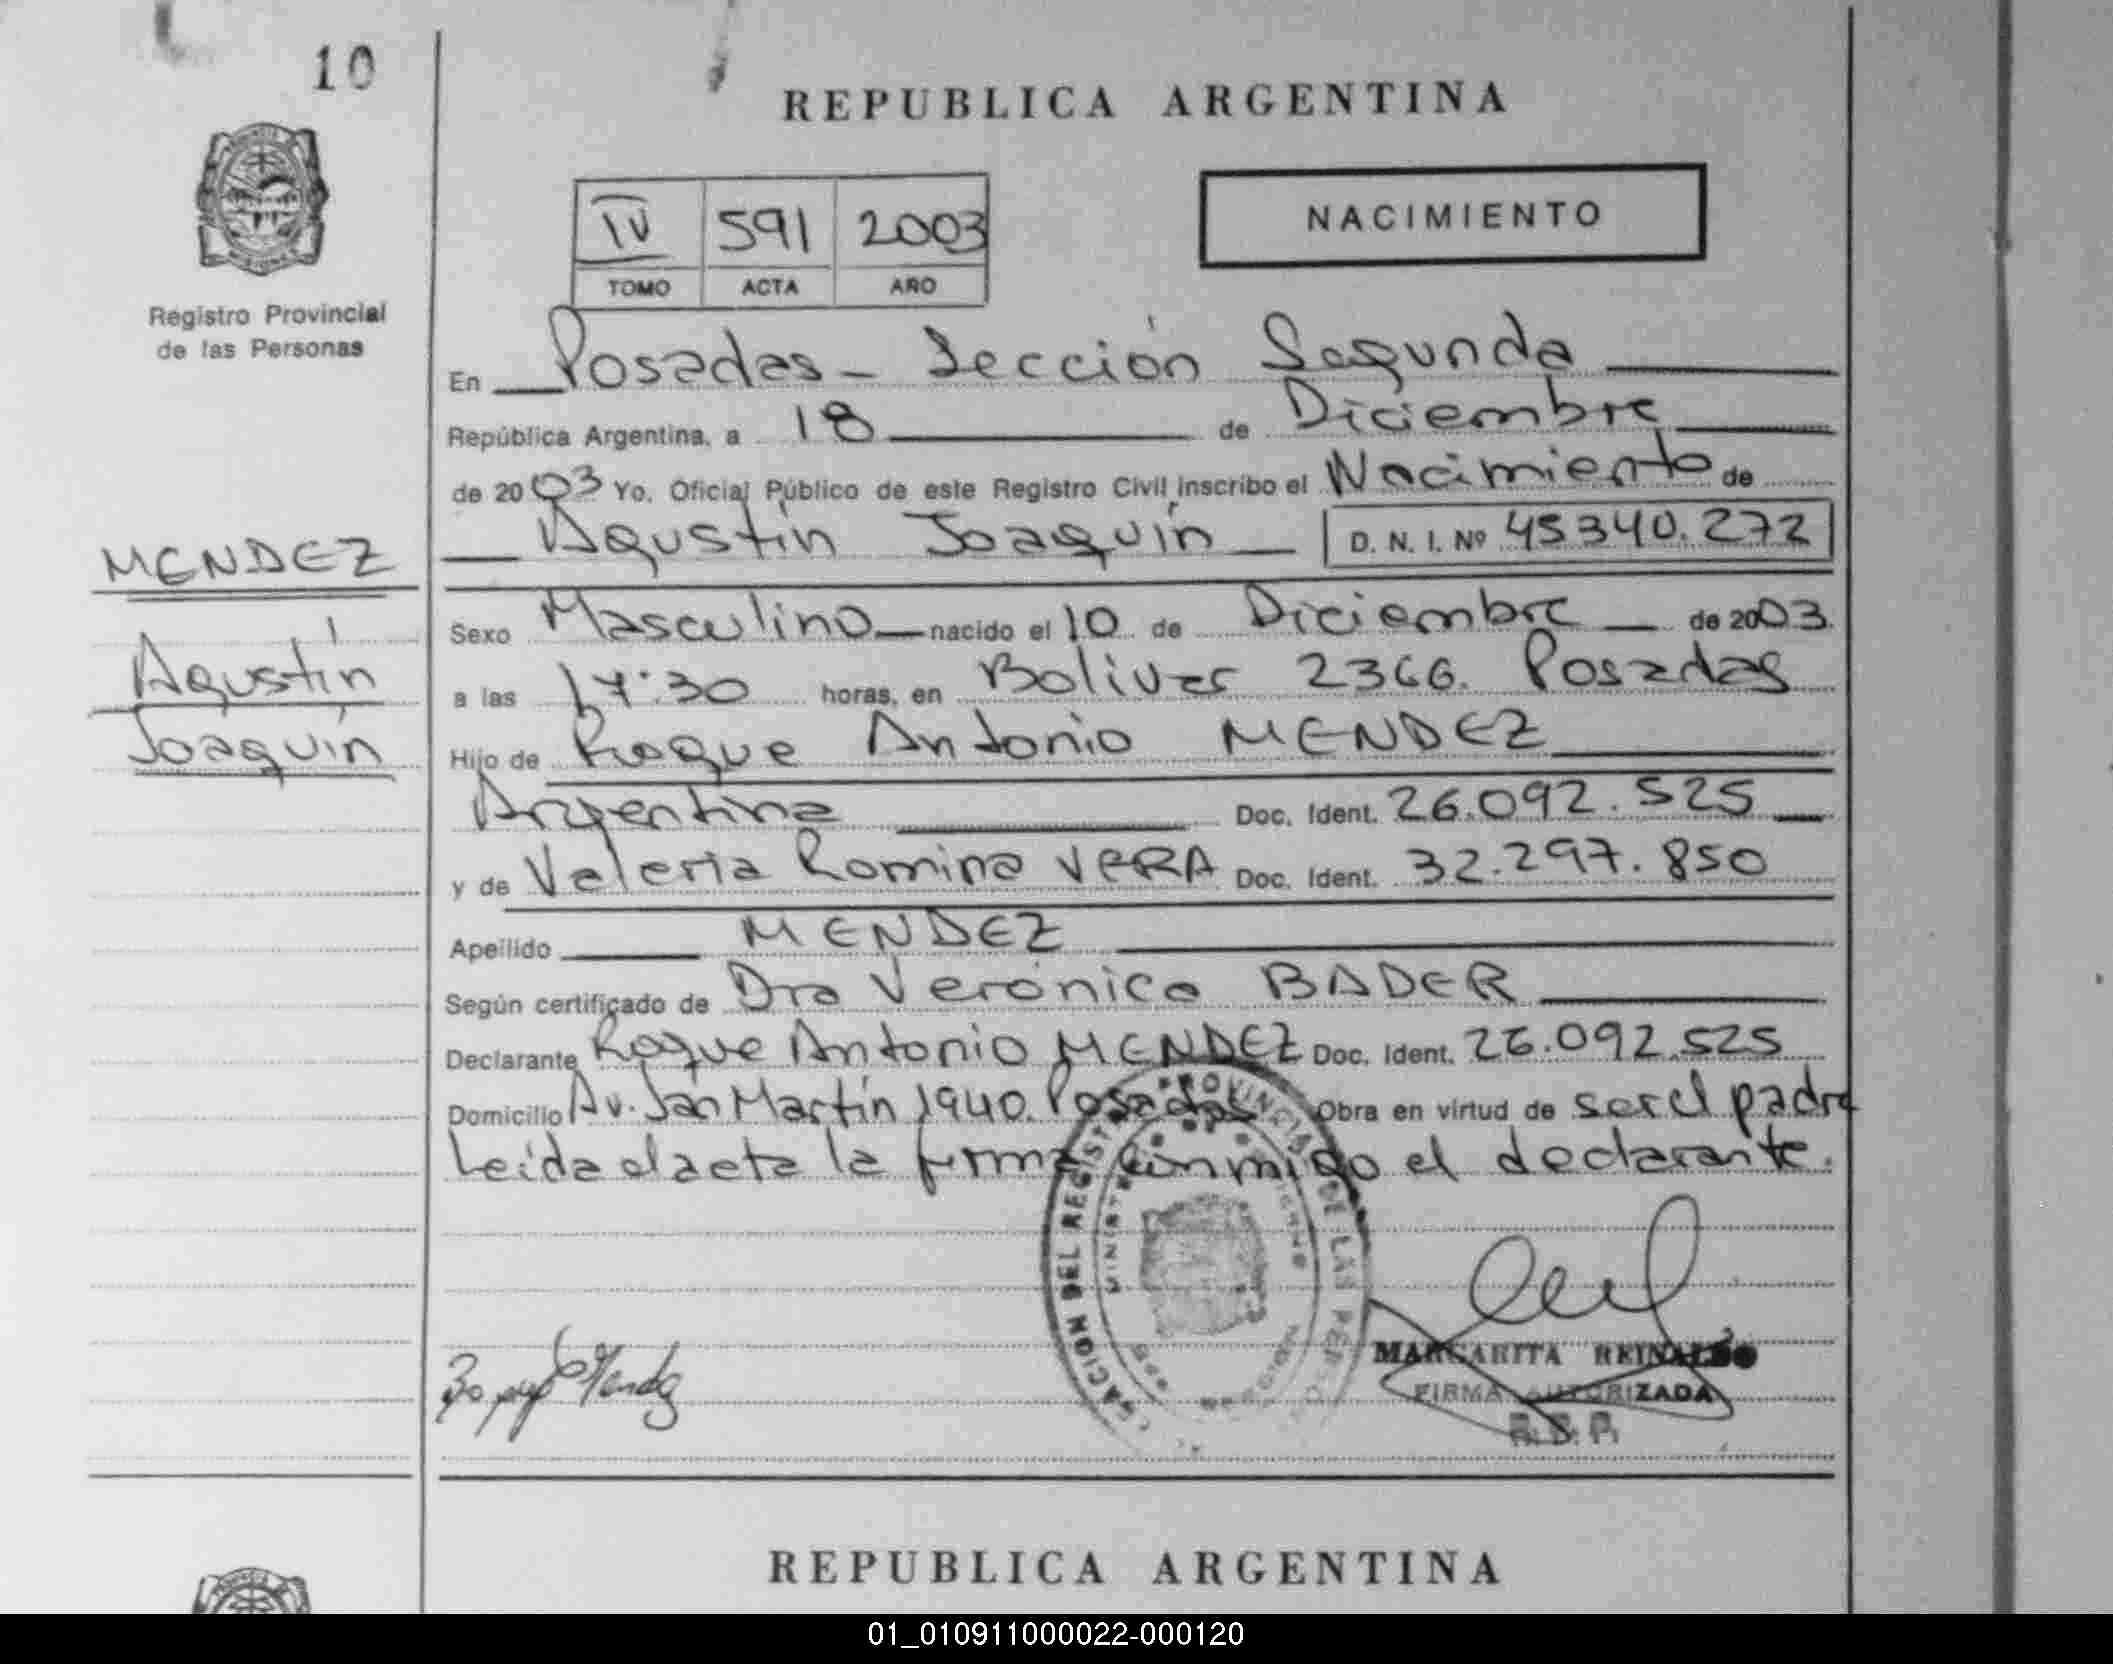 10
REPUBLICA ARGENTINA
IV 591 2003
TOMO ACTA AÑO
NACIMIENTO
Registro Provincial
de las Personas
En Posadas - Sección Segunda
República Argentina, a 18 de Diciembre
de 2003 Yo, Oficial Público de este Registro Civil inscribo el Nacimiento de
Agustín Joaquín D. N. I. Nº 45340.272
MENDEZ
Agustín
Joaquín
Sexo Masculino nacido el 10 de Diciembre de 2003.
a las 17:30 horas, en Bolivar 2366. Posadas
Hijo de Roque Antonio MENDEZ
Argentina Doc. Ident. 26.092.525
y de Valeria Romina VERA Doc. Ident. 32.297.850
Apellido MENDEZ
Según certificado de Dra Verónica BADER
Declarante Roque Antonio MENDEZ Doc. Ident. 26.092.525
Domicilio Av. San Martín 1940. Posadas Obra en virtud de ser el padre
Leída el acta la firma conmigo el declarante.
MARGARITA REINALDO
FIRMA AUTORIZADA
REPUBLICA ARGENTINA
01_010911000022-000120